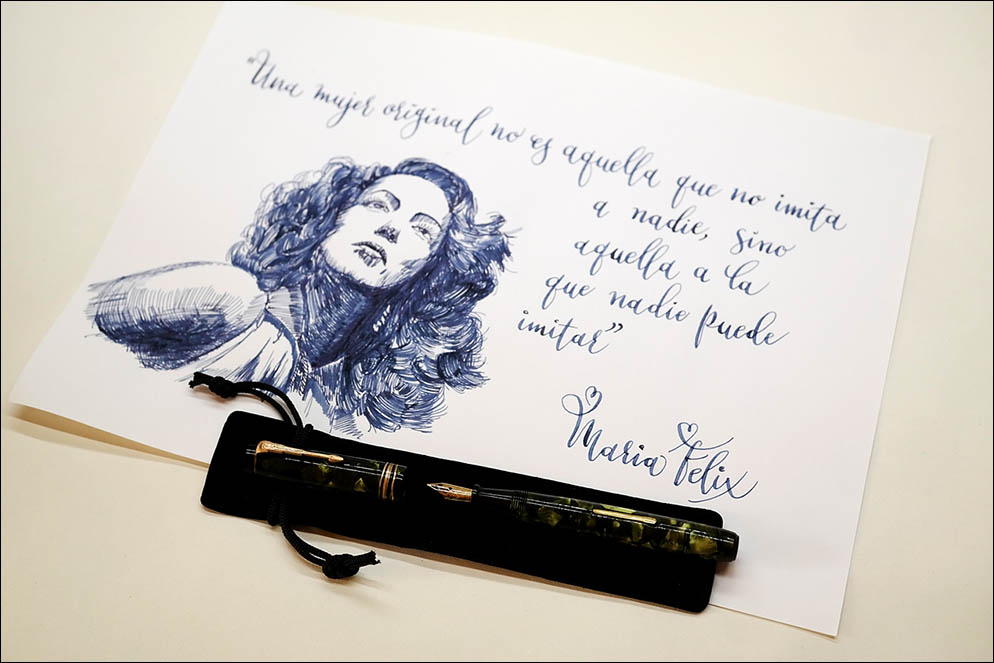 "Una mujer original no es aquella que no imita
a nadie, sino
aquella a la
que nadie puede
imitar"
Maria Felix